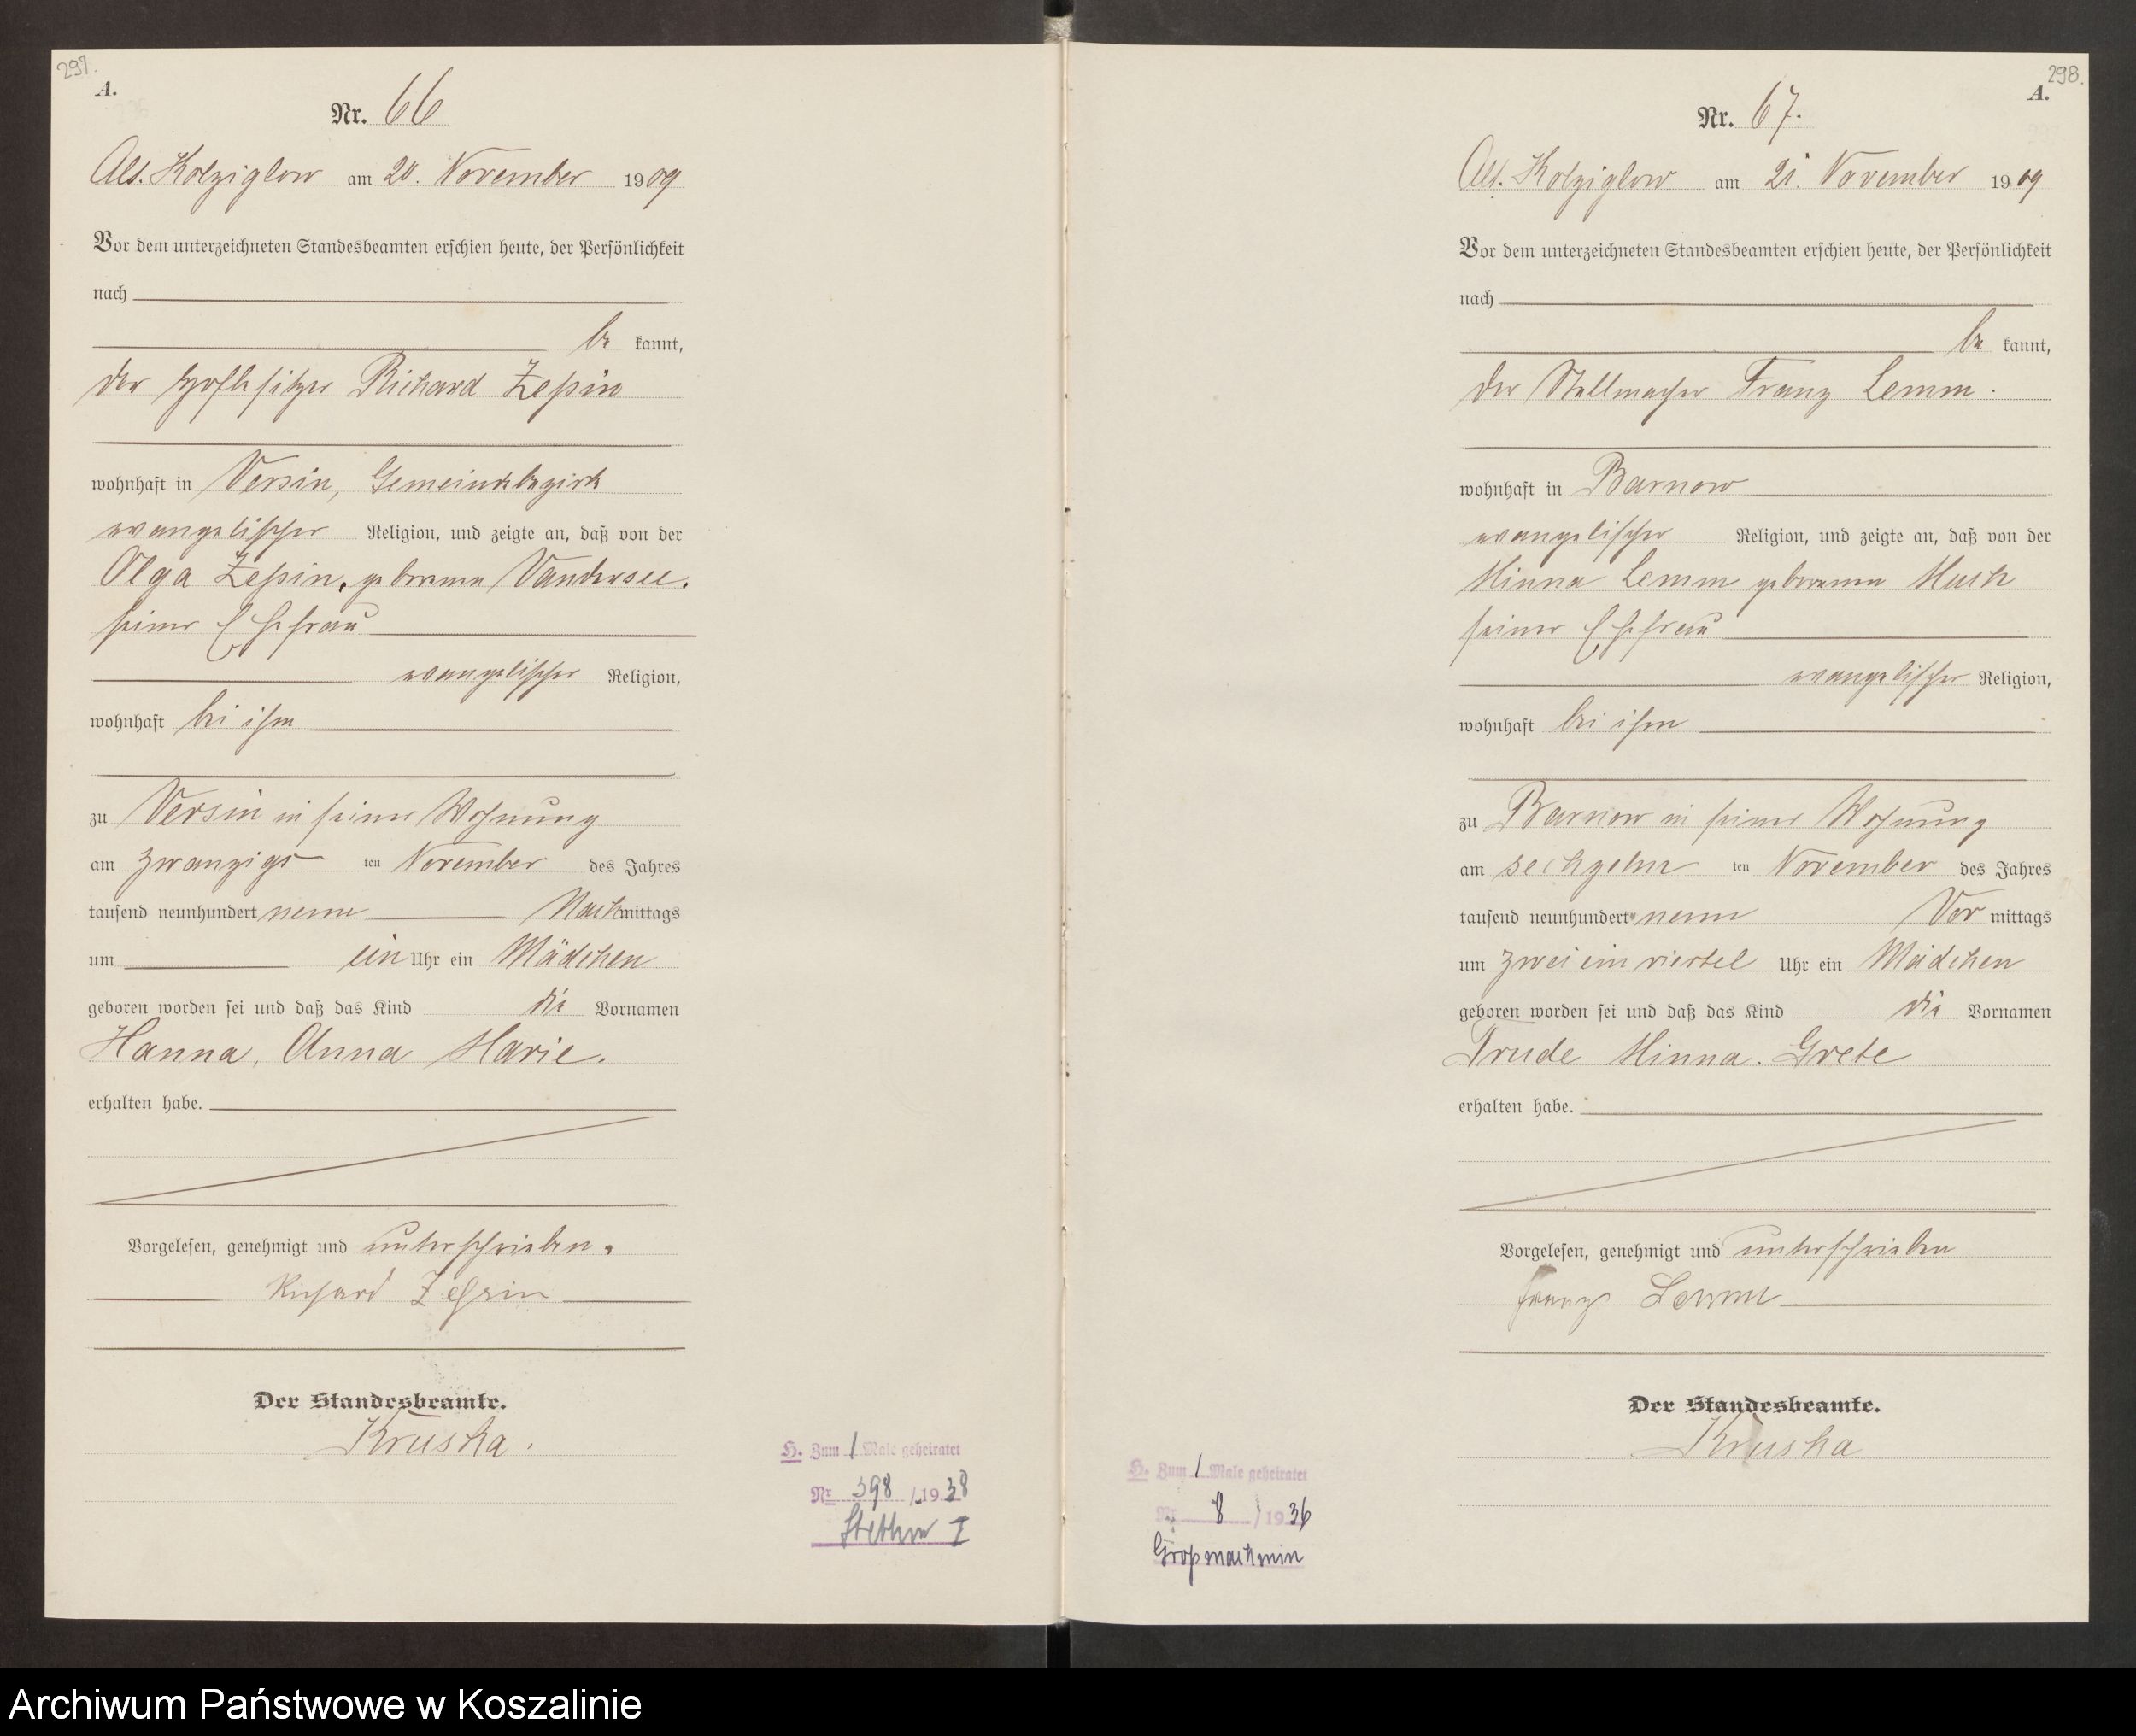 297.
A.
Nr. 66
Alt. Kolziglow am 20. November 1909
Vor dem unterzeichneten Standesbeamten erschien heute, der Persönlichkeit
nach
be kannt,
der Hofbesitzer Richard Zessin
wohnhaft in Versin, Gemeindebezirk
evangelischer Religion, und zeigte an, daß von der
Olga Zessin, geborenen Vandersee,
seiner Ehefrau
evangelischer Religion,
wohnhaft bei ihm
zu Versin in seiner Wohnung
am zwanzigs ten November des Jahres
tausend neunhundert neun Nachmittags
um ein Uhr ein Mädchen
geboren worden sei und daß das Kind die Vornamen
Hanna, Anna Marie.
erhalten habe.
Vorgelesen, genehmigt und unterschrieben.
Richard Zessin
Der Standesbeamte.
Kruska.
H. Zum 1 Male geheiratet
Nr. 398 /1938
Stettin I
298.
A.
Nr. 67.
Alt. Kolziglow am 21. November 1909
Vor dem unterzeichneten Standesbeamten erschien heute, der Persönlichkeit
nach
be kannt,
der Stellmacher Franz Lemm.
wohnhaft in Barnow
evangelischer Religion, und zeigte an, daß von der
Minna Lemm geborenen Musch
seiner Ehefrau
evangelischer Religion,
wohnhaft bei ihm
zu Barnow in seiner Wohnung
am sechzehn ten November des Jahres
tausend neunhundert neun Vor mittags
um zwei ein viertel Uhr ein Mädchen
geboren worden sei und daß das Kind die Vornamen
Trude Minna. Grete
erhalten habe.
Vorgelesen, genehmigt und unterschrieben
Franz Lemm
Der Standesbeamte.
Kruska
H. Zum 1 Male geheiratet
Nr. 8 /1936
Großmachmin
Archiwum Państwowe w Koszalinie